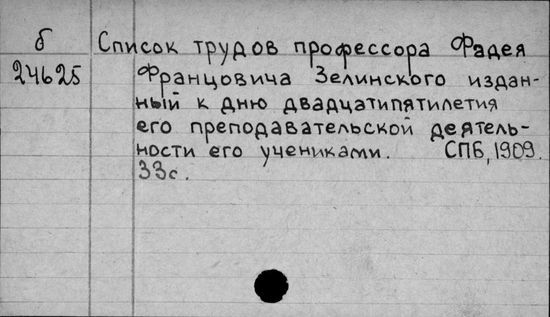 б Список трудов профессора Фадея
24625 Францовича Зелинского издан-
ный к дню двадцатипятилетия
его преподавательской деятель-
ности его учениками. СПб, 1909.
33с.